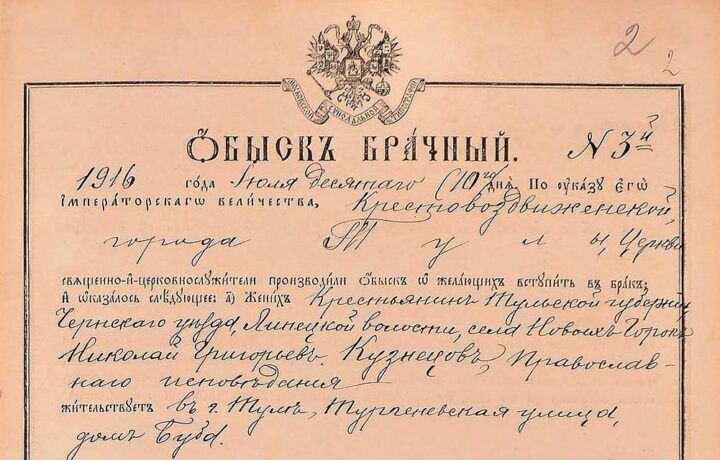 2
2
Московской Сѵнодальной типографіи
Ѻбыскъ брачный. N 3й
1916 года Іюля десятаго (10го) дня. По ѹказу Егѡ
Императорскагѡ Величества, Крестовоздвиженской,
города Тулы, Церкви
священно-и-церковнослужители производили ѻбыскъ ѡ желающихъ вступить въ бракъ;
и ѡказалось слѣдующее: а) Женихъ Крестьянинъ Тульской губерніи,
Чернскаго уѣзда, Липецкой волости, села Новыхъ Горокъ
Николай Григорьевъ Кузнецовъ, Православ-
наго исповѣданія
жительствуетъ въ г. Тулѣ, Тургеневская улица,
домъ